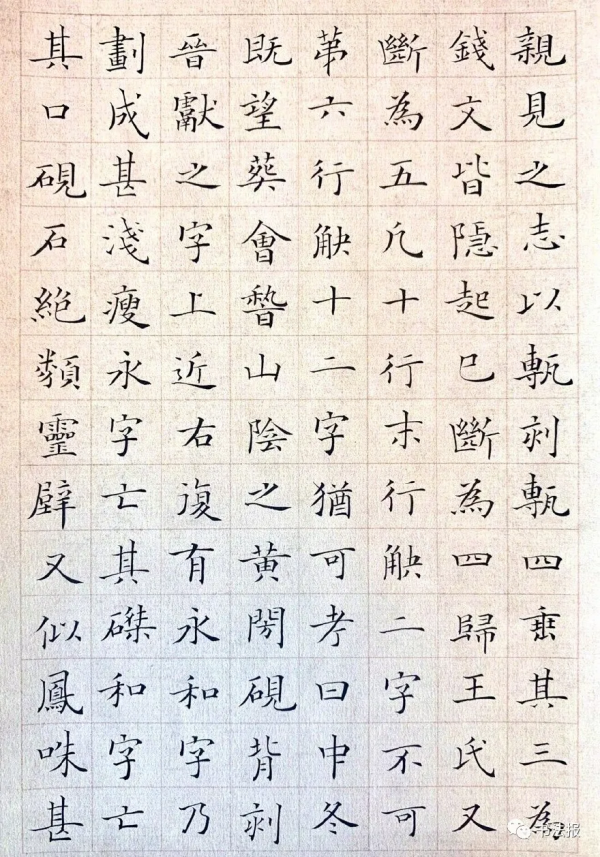 親見之志以甎刻甎四垂其三為
錢文皆隱起已斷為四歸王氏又
斷為五凡十行末行觖二字不可
苐六行觖十二字猶可考曰中冬
既望葬會稽山陰之黃閍硯背刻
晉獻之字上近右復有永和字乃
劃成甚淺瘦永字亡其磔和字亡
其口硯石絕類靈壁又似鳳咮甚
书法报